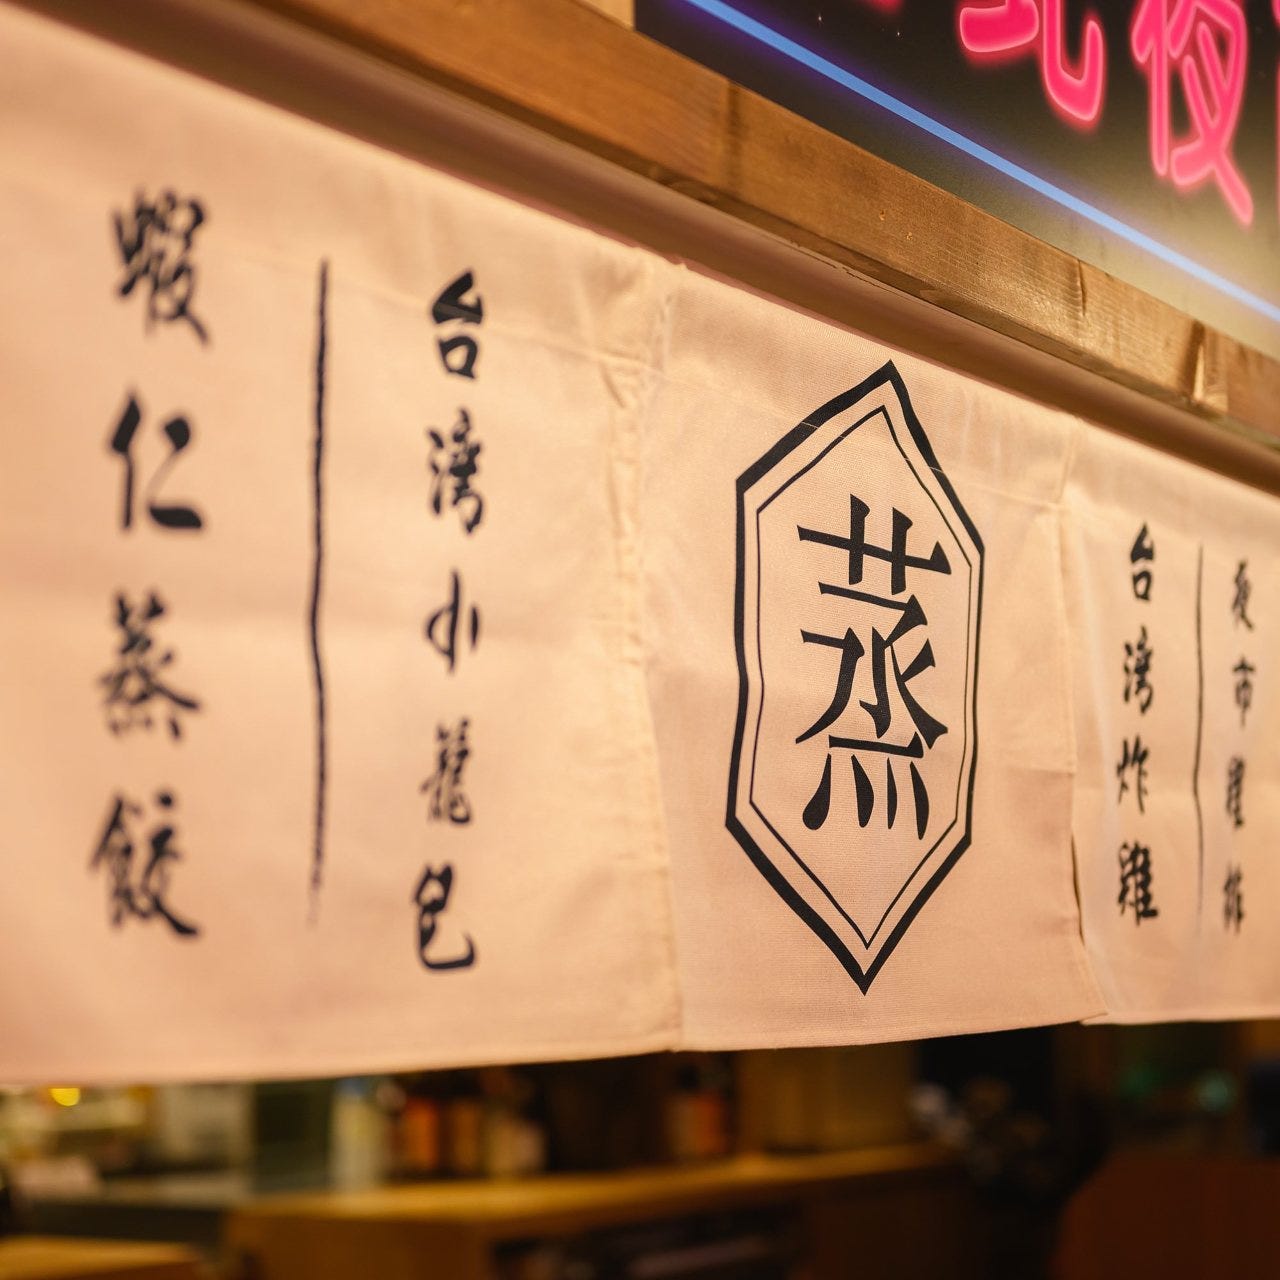 夜
蝦仁蒸餃
台湾小籠包
蒸
台湾炸雞
夜市雞排